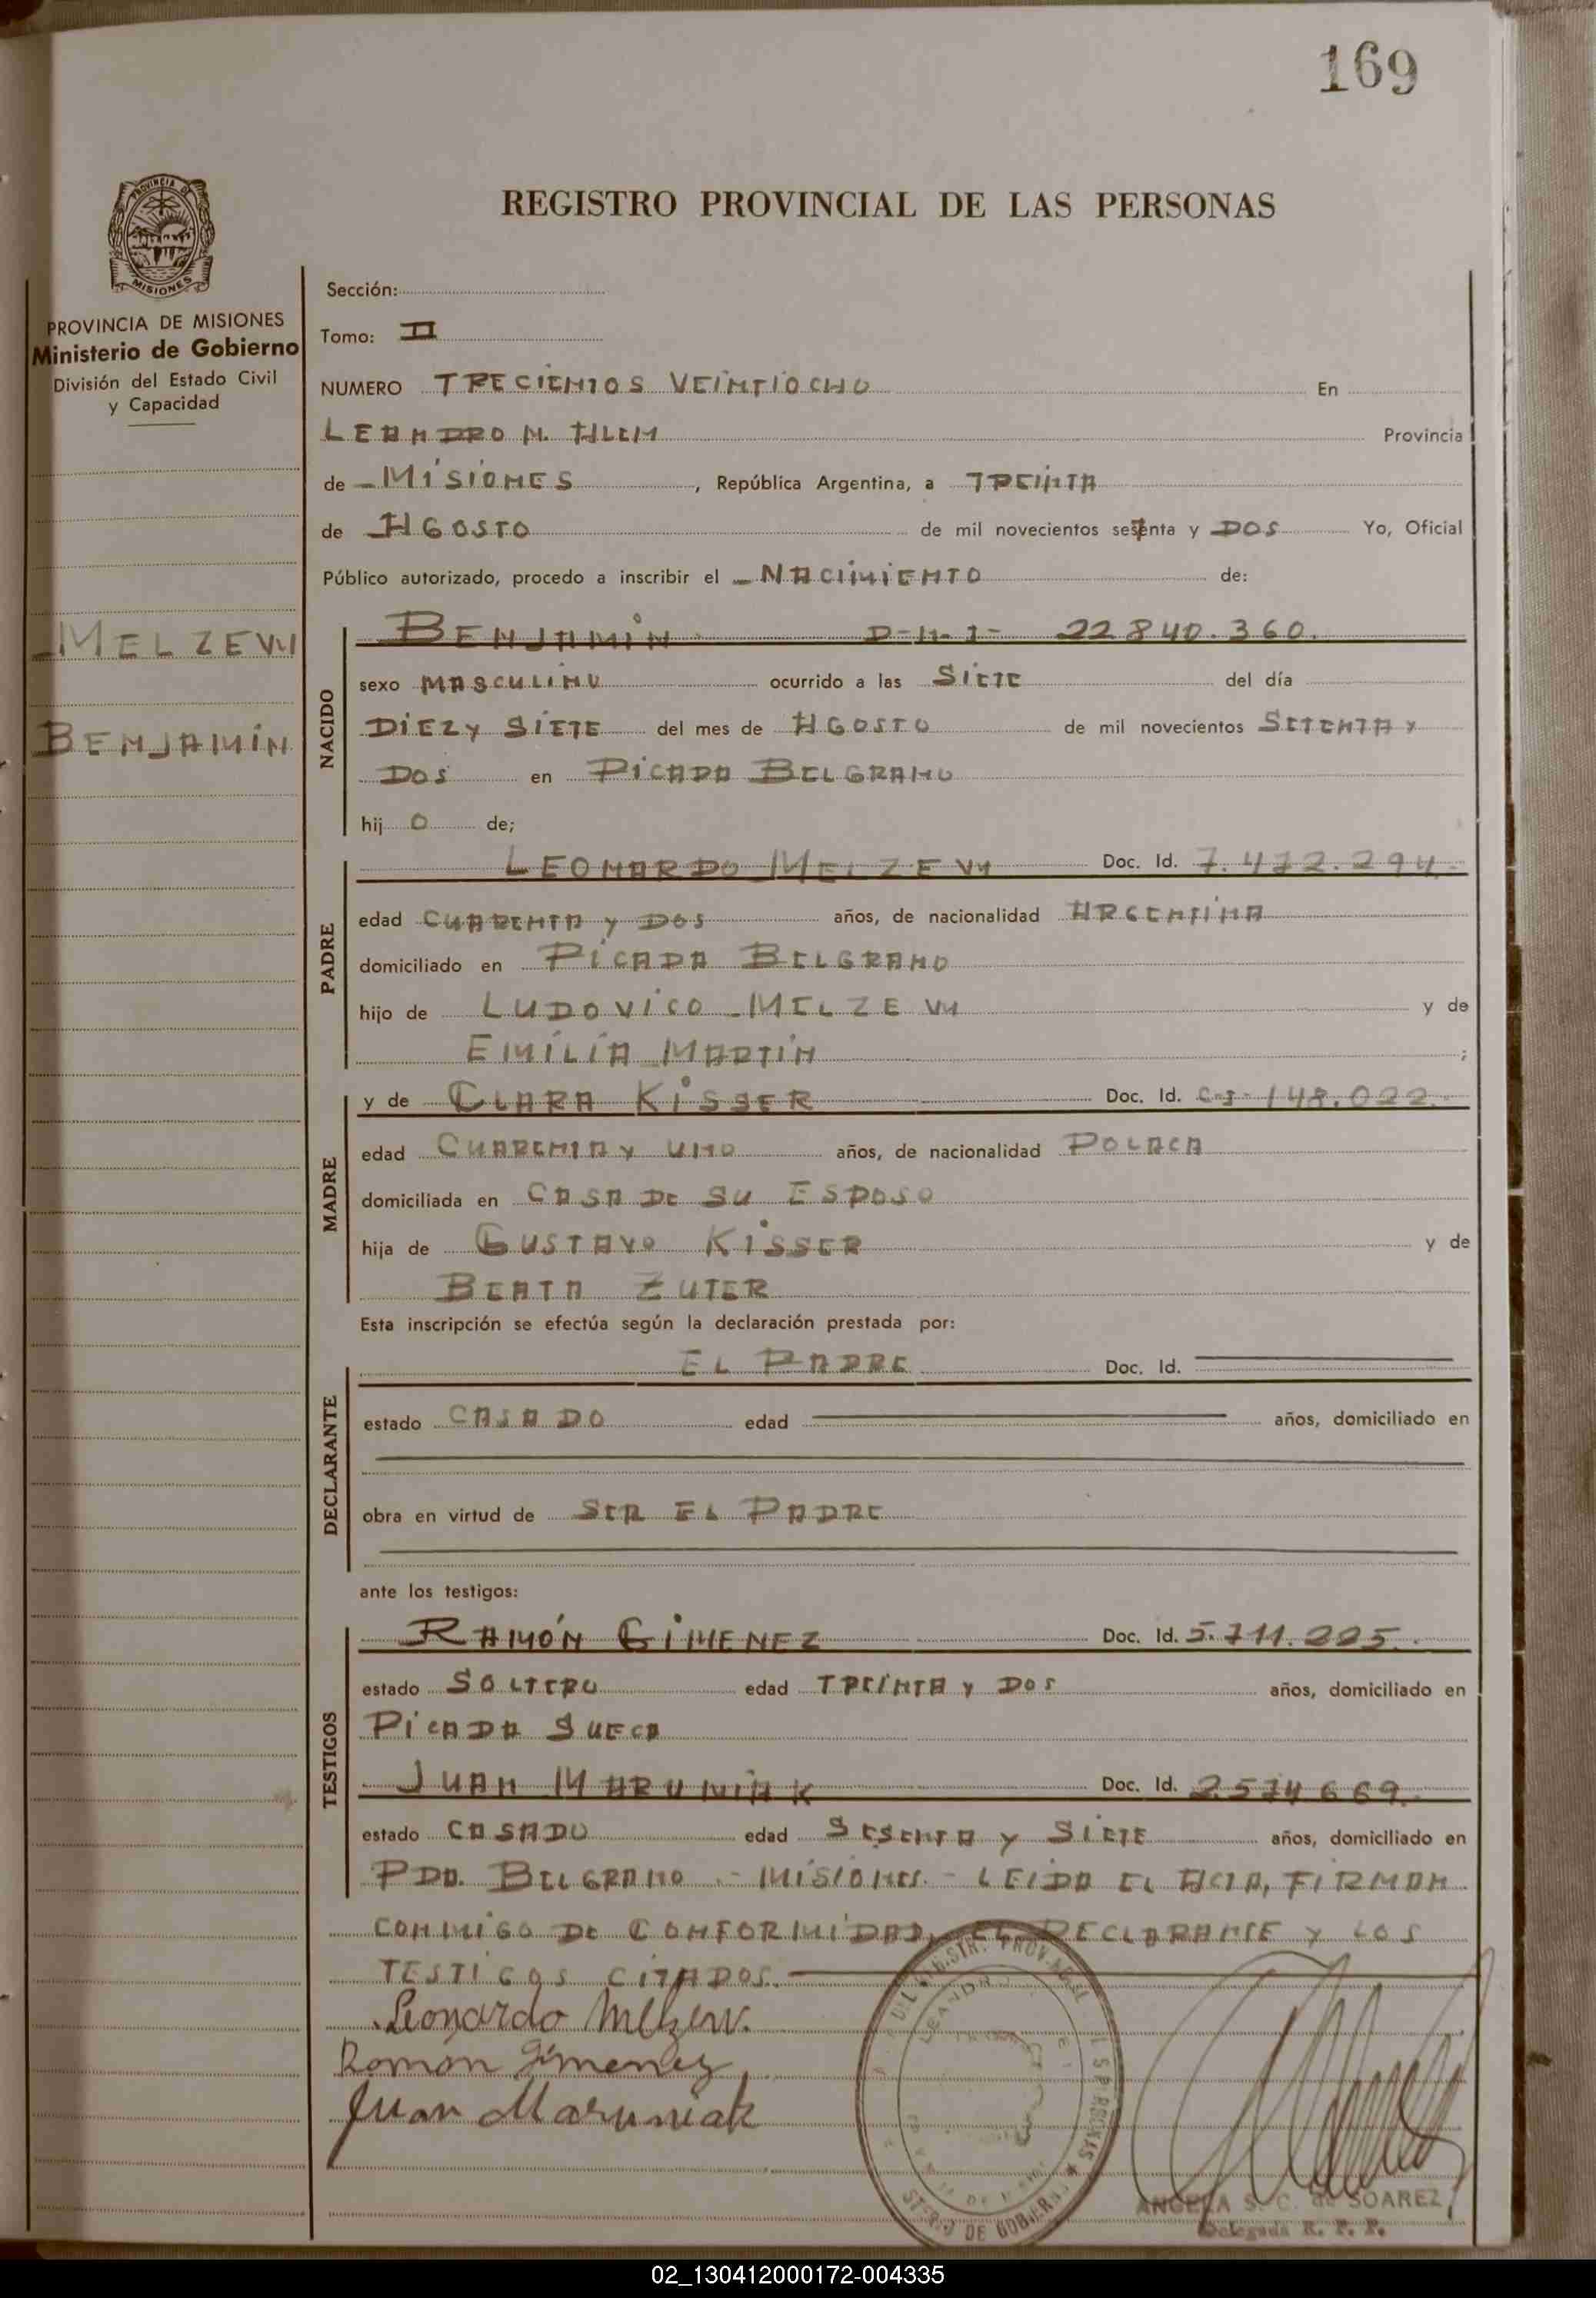 169
PROVINCIA DE
MISIONES
REGISTRO PROVINCIAL DE LAS PERSONAS
PROVINCIA DE MISIONES
Ministerio de Gobierno
División del Estado Civil
y Capacidad
MELZEW
BENJAMÍN
Sección:
Tomo: II
NUMERO TRECIENTOS VEINTIOCHO En
LEANDRO N. ALEM Provincia
de MISIONES, República Argentina, a TREINTA
de AGOSTO de mil novecientos setenta y DOS Yo, Oficial
Público autorizado, procedo a inscribir el NACIMIENTO de:
NACIDO
BENJAMÍN D-N-I- 22840.360.
sexo MASCULINO ocurrido a las SIETE del día
DIEZ Y SIETE del mes de AGOSTO de mil novecientos SETENTA Y
DOS en PICADA BELGRANO
hij O de;
PADRE
LEONARDO MELZEW Doc. Id. 7.472.294.
edad CUARENTA Y DOS años, de nacionalidad ARGENTINA
domiciliado en PICADA BELGRANO
hijo de LUDOVICO MELZEW y de
EMILIA MARTIN ;
MADRE
y de CLARA KISSER Doc. Id. C-I- 148.022.
edad CUARENTA Y UNO años, de nacionalidad POLACA
domiciliada en CASA DE SU ESPOSO
hija de GUSTAVO KISSER y de
BEATA ZUTER
Esta inscripción se efectúa según la declaración prestada por:
DECLARANTE
EL PADRE Doc. Id.
estado CASADO edad años, domiciliado en
obra en virtud de SER EL PADRE
ante los testigos:
TESTIGOS
RAMÓN GIMENEZ Doc. Id. 5.711.225.
estado SOLTERO edad TREINTA Y DOS años, domiciliado en
PICADA SUECA
JUAN MARUNIAK Doc. Id. 2.574669.
estado CASADO edad SESENTA Y SIETE años, domiciliado en
PDA. BELGRANO - MISIONES - LEIDA EL ACTA, FIRMAN
CONMIGO DE CONFORMIDAD, EL DECLARANTE Y LOS
TESTIGOS CITADOS.
Leonardo Melzew.
Ramón Gimenez
Juan Maruniak
LEANDRO
DE GOBIERNO
ANGELA S. C. de SOAREZ
Delegada R. P. P.
02_130412000172-004335